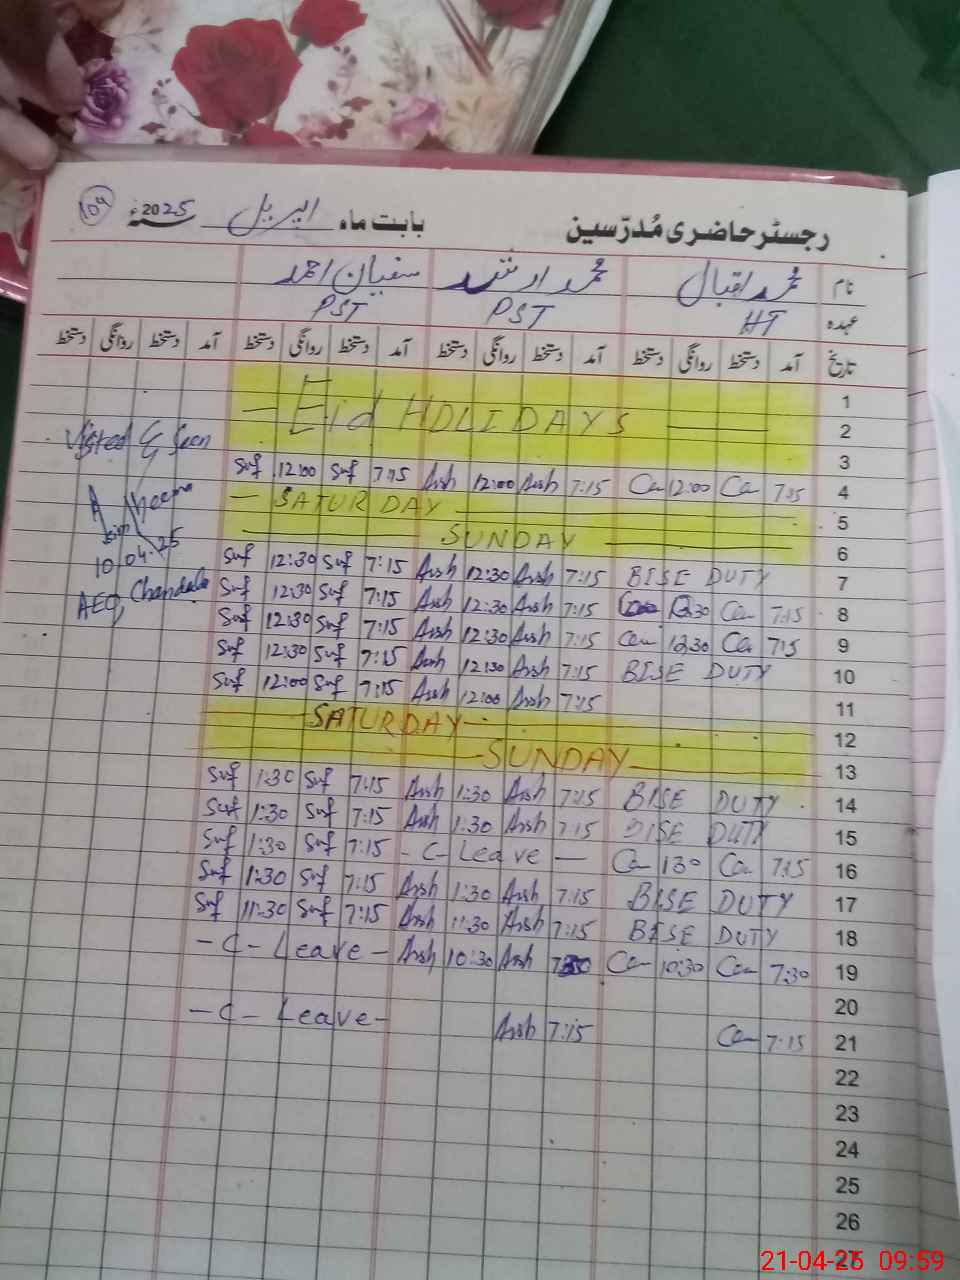 رجسٹر حاضری مُدرّسین بابت ماہ اپریل 2025ء 104
نام محمد اقبال محمد ارشد سفیان احمد
عہدہ HT PST PST
تاریخ آمد دستخط روانگی دستخط آمد دستخط روانگی دستخط آمد دستخط روانگی دستخط آمد دستخط روانگی دستخط
1
— Eid HOLIDAYS — 2
3
Suf 12:00 Suf 7:15 Arsh 12:00 Arsh 7:15 12:00 7:15 4
— SATURDAY — 5
— SUNDAY — 6
Suf 12:30 Suf 7:15 Arsh 12:30 Arsh 7:15 BISE DUTY 7
Suf 12:30 Suf 7:15 Arsh 12:30 Arsh 7:15 12:30 7:15 8
Suf 12:30 Suf 7:15 Arsh 12:30 Arsh 7:15 12:30 7:15 9
Suf 12:30 Suf 7:15 Arsh 12:30 Arsh 7:15 BISE DUTY 10
Suf 12:00 Suf 7:15 Arsh 12:00 Arsh 7:15 11
— SATURDAY — 12
— SUNDAY — 13
Suf 1:30 Suf 7:15 Arsh 1:30 Arsh 7:15 BISE DUTY 14
Suf 1:30 Suf 7:15 Arsh 1:30 Arsh 7:15 BISE DUTY 15
Suf 1:30 Suf 7:15 - C - Leave — 130 7:15 16
Suf 1:30 Suf 7:15 Arsh 1:30 Arsh 7:15 BISE DUTY 17
Suf 11:30 Suf 7:15 Arsh 11:30 Arsh 7:15 BISE DUTY 18
- C - Leave - Arsh 10:30 Arsh 10:30 7:30 19
20
- C - Leave - Arsh 7:15 7:15 21
22
23
24
25
26
27
Visited & Seen
10.04.25
AEO,
21-04-25 09:59